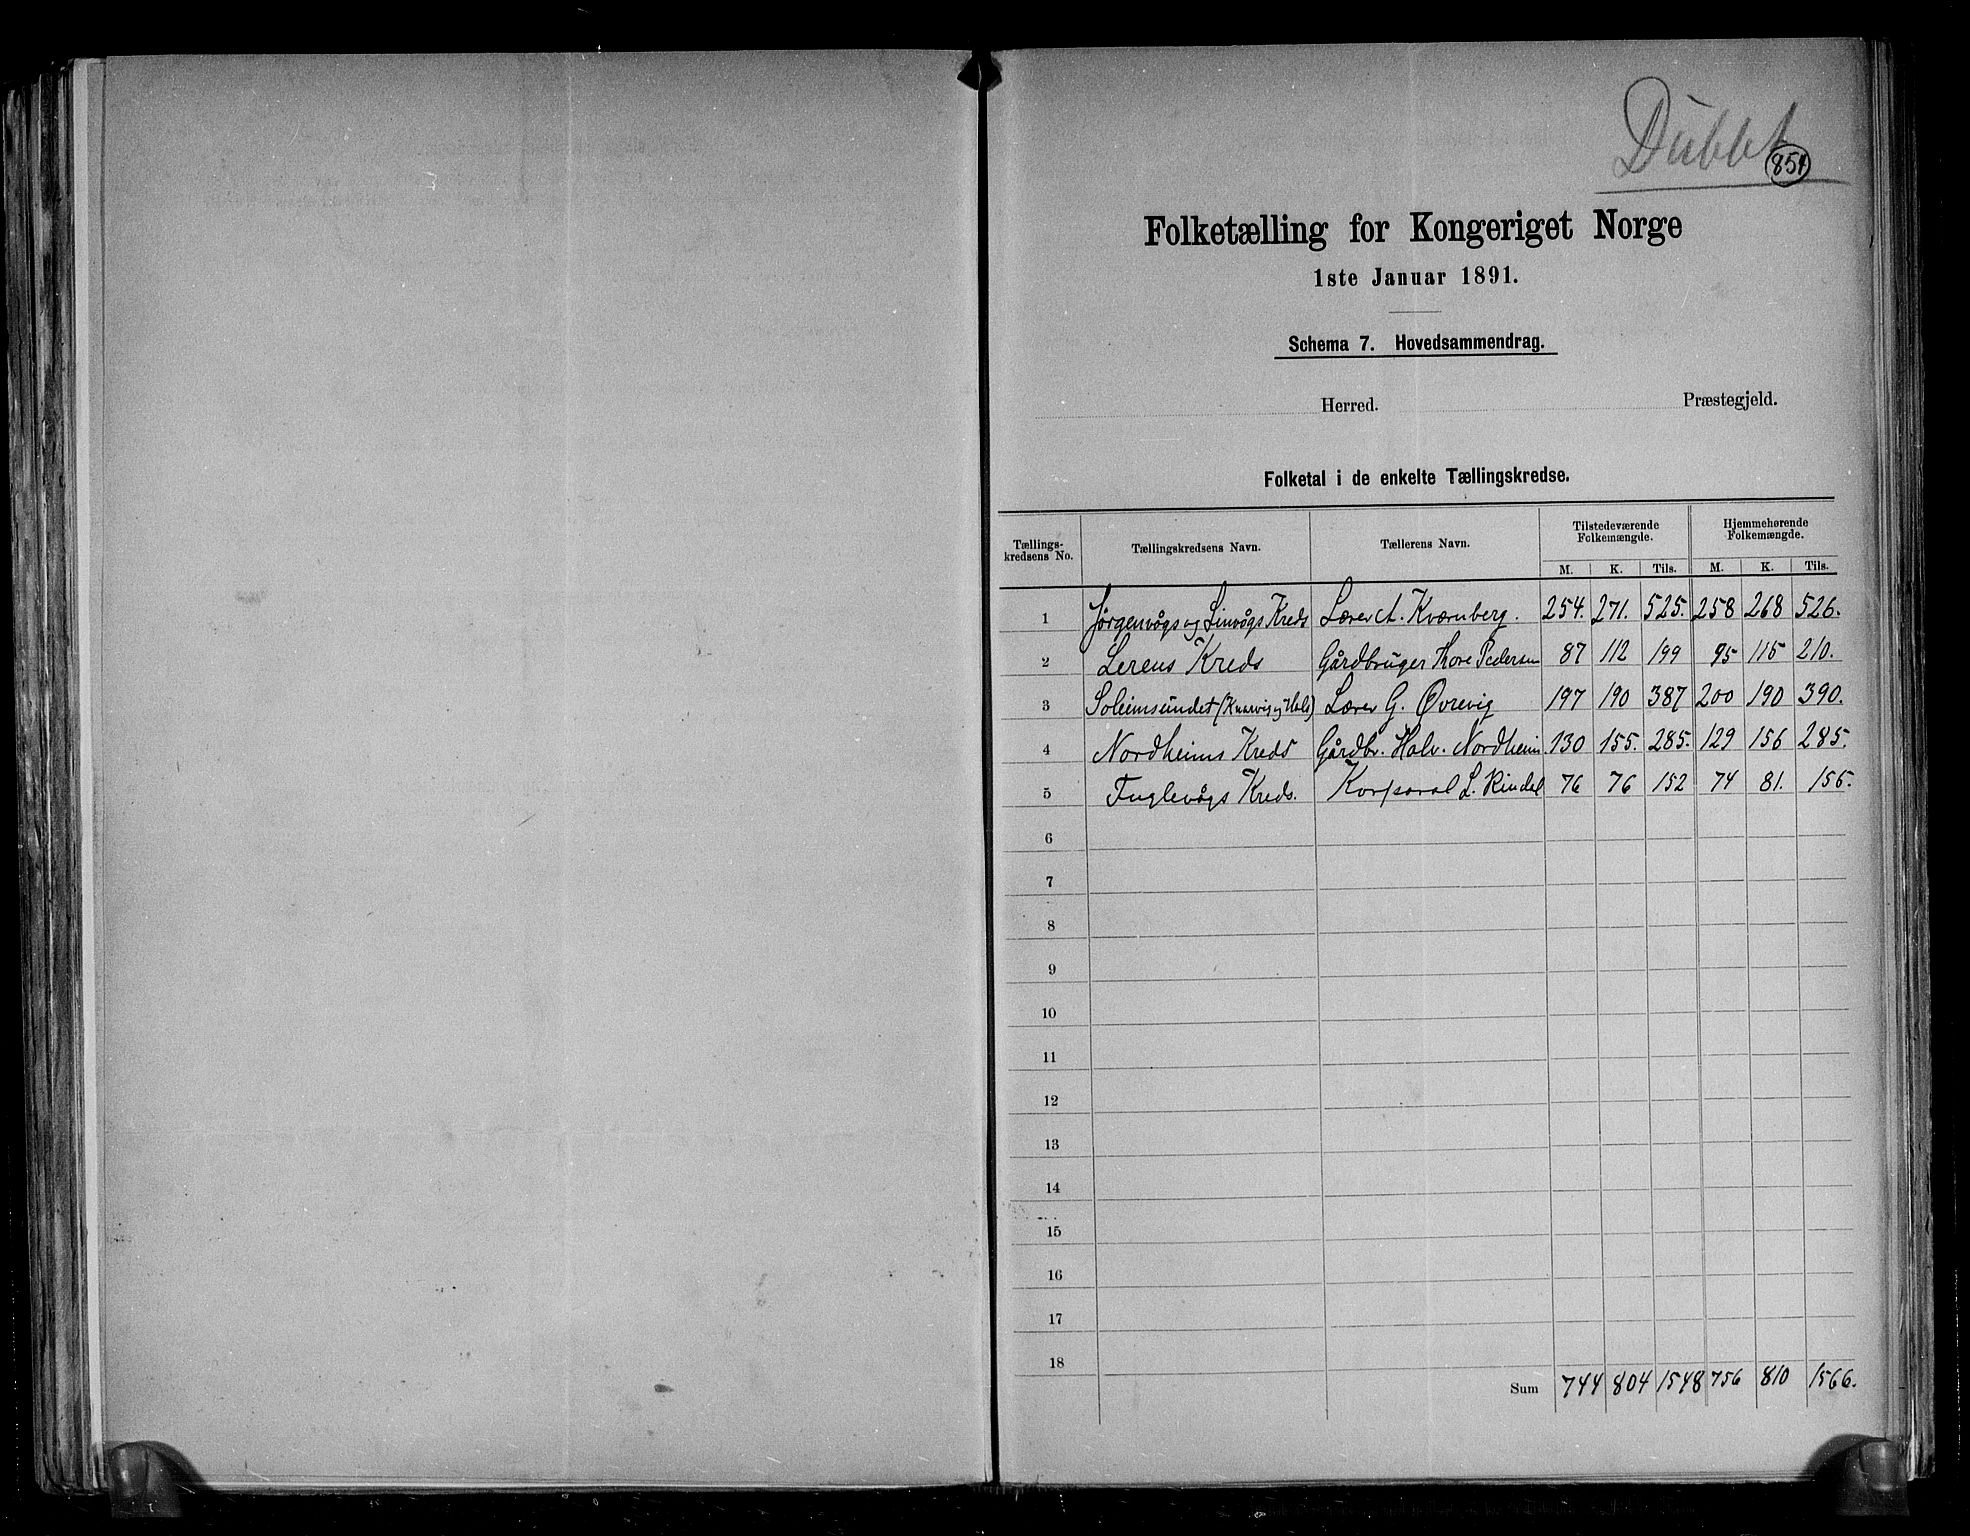 Dubbet
854
Folketælling for Kongeriget Norge
1ste Januar 1891.
Schema 7. Hovedsammendrag.
Herred. Præstegjeld.
Folketal i de enkelte Tællingskredse.
Tællings-kredsens No. Tællingskredsens Navn. Tællerens Navn. Tilstedeværende Folkemængde. Hjemmehørende Folkemængde.
M. K. Tils. M. K. Tils.
1 Jørgenvågs og Linvågs Kreds Lærer A. Kværnberg. 254. 271. 525. 258 268 526.
2 Lerens Kreds Gårdbruger Tore Pedersen 87 112 199 95 115 210.
3 Soleimsundet (Knarvig og Hals) Lærer G. Øvrevig 197 190 387 200 190 390.
4 Nordheims Kreds Gårdbr. Halv. Nordheim 130 155. 285. 129 156 285.
5 Fuglevågs Kreds. Korporal L. Rindal 76 76 152 74 81. 155.
6
7
8
9
10
11
12
13
14
15
16
17
18
Sum 744 804 1548 756 810 1566.